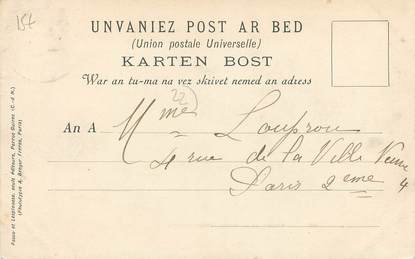 154
UNVANIEZ POST AR BED
(Union postale Universelle)
KARTEN BOST
War an tu-ma na vez skrivet nemed an adress
22
An A Mme Loupron
4 rue de la Ville Neuve 4
Paris 2eme
Passe et Lespinasse, seuls éditeurs, Perros-Guirec (C.-d.-N.)
(Phototypie A. Berger Frères, Paris)